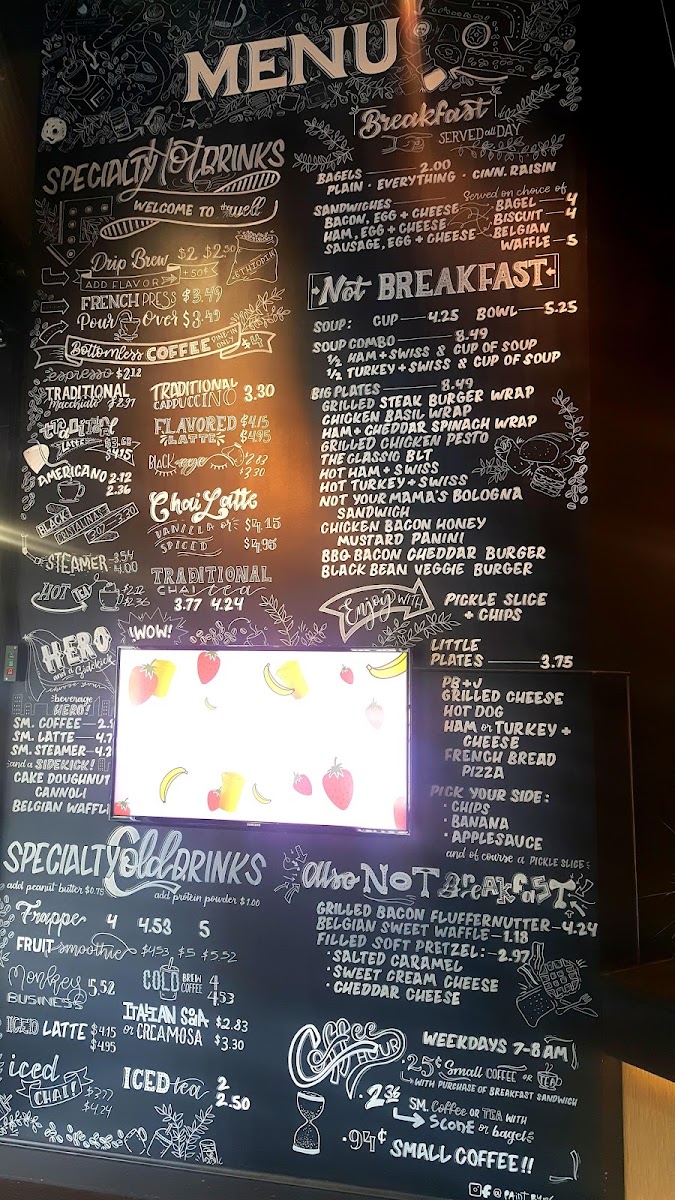 MENU
SPECIALTY Hot DRINKS
WELCOME TO the well
Drip Brew $2 $2.50
ADD FLAVOR +50¢
ETHIOPIA
FRENCH PRESS $3.49
Pour Over $3.49
Bottomless COFFEE DINE-IN ONLY $4
espresso $2.12
TRADITIONAL Macchiato $2.97
TRADITIONAL CAPPUCCINO 3.30
LATTE $3.68 $4.15
FLAVORED LATTE $4.15 $4.95
AMERICANO 2.12 2.36
BLACK-eye $2.83 $3.30
Chai Latte
VANILLA or SPICED $4.15 $4.95
STEAMER 3.54 4.00
HOT TEA $2.12 $2.36
TRADITIONAL
CHAI tea
3.77 4.24
HERO
and a Sidekick
choose your
beverage
HERO!
SM. COFFEE
SM. LATTE
SM. STEAMER
and a SIDEKICK!
CAKE DOUGHNUT
CANNOLI
BELGIAN WAFFL
WOW!
SPECIALTY Cold DRINKS
add peanut butter $0.75
add protein powder $1.00
Frappe 4 4.53 5
FRUIT smoothie $4.53 $5 $5.52
Monkey BUSINESS 5.52
COLD BREW COFFEE 4 4.53
ICED LATTE $4.15 $4.95
ITALIAN SODA or CREAMOSA $2.83 $3.30
iced CHAI $3.77 $4.24
ICED tea 2 2.50
Breakfast
SERVED all DAY
BAGELS 2.00
PLAIN · EVERYTHING · CINN. RAISIN
SANDWICHES Served on choice of
BACON, EGG + CHEESE BAGEL 4
HAM, EGG + CHEESE BISCUIT 4
SAUSAGE, EGG + CHEESE BELGIAN WAFFLE 5
Not BREAKFAST
SOUP: CUP 4.25 BOWL 5.25
SOUP COMBO 8.49
1/2 HAM + SWISS & CUP OF SOUP
1/2 TURKEY + SWISS & CUP OF SOUP
BIG PLATES 8.49
GRILLED STEAK BURGER WRAP
CHICKEN BASIL WRAP
HAM + CHEDDAR SPINACH WRAP
GRILLED CHICKEN PESTO
THE CLASSIC BLT
HOT HAM + SWISS
HOT TURKEY + SWISS
NOT YOUR MAMA'S BOLOGNA
SANDWICH
CHICKEN BACON HONEY
MUSTARD PANINI
BBQ BACON CHEDDAR BURGER
BLACK BEAN VEGGIE BURGER
Enjoy WITH PICKLE SLICE
+ CHIPS
LITTLE
PLATES 3.75
PB+J
GRILLED CHEESE
HOT DOG
HAM or TURKEY +
CHEESE
FRENCH BREAD
PIZZA
PICK YOUR SIDE:
· CHIPS
· BANANA
· APPLESAUCE
and of course a PICKLE SLICE!
also NOT BreAkfaST
GRILLED BACON FLUFFERNUTTER 4.24
BELGIAN SWEET WAFFLE 1.18
FILLED SOFT PRETZEL: 2.97
· SALTED CARAMEL
· SWEET CREAM CHEESE
· CHEDDAR CHEESE
Coffee HOUR
WEEKDAYS 7-8 AM
· 25¢ Small COFFEE OR TEA
WITH PURCHASE OF BREAKFAST SANDWICH
· 2.36
SM. Coffee OR TEA WITH
SCONE or bagel
· 94¢ SMALL COFFEE!!